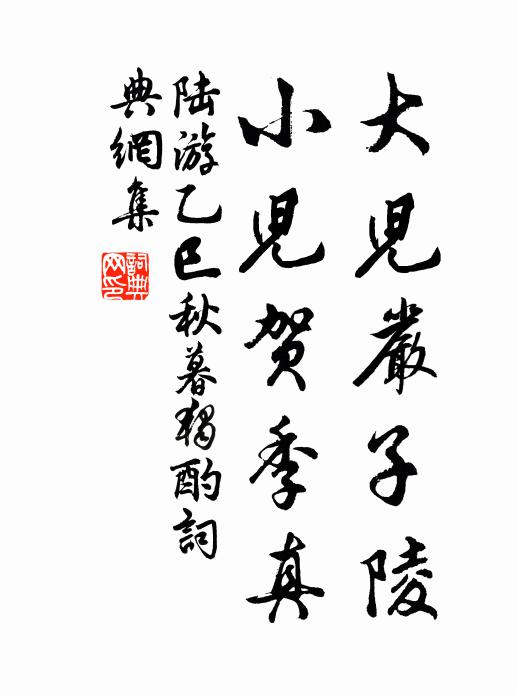 大兒嚴子陵
小兒賀季真
陸游乙巳秋暮獨酌詞
典網集
詞典
网印